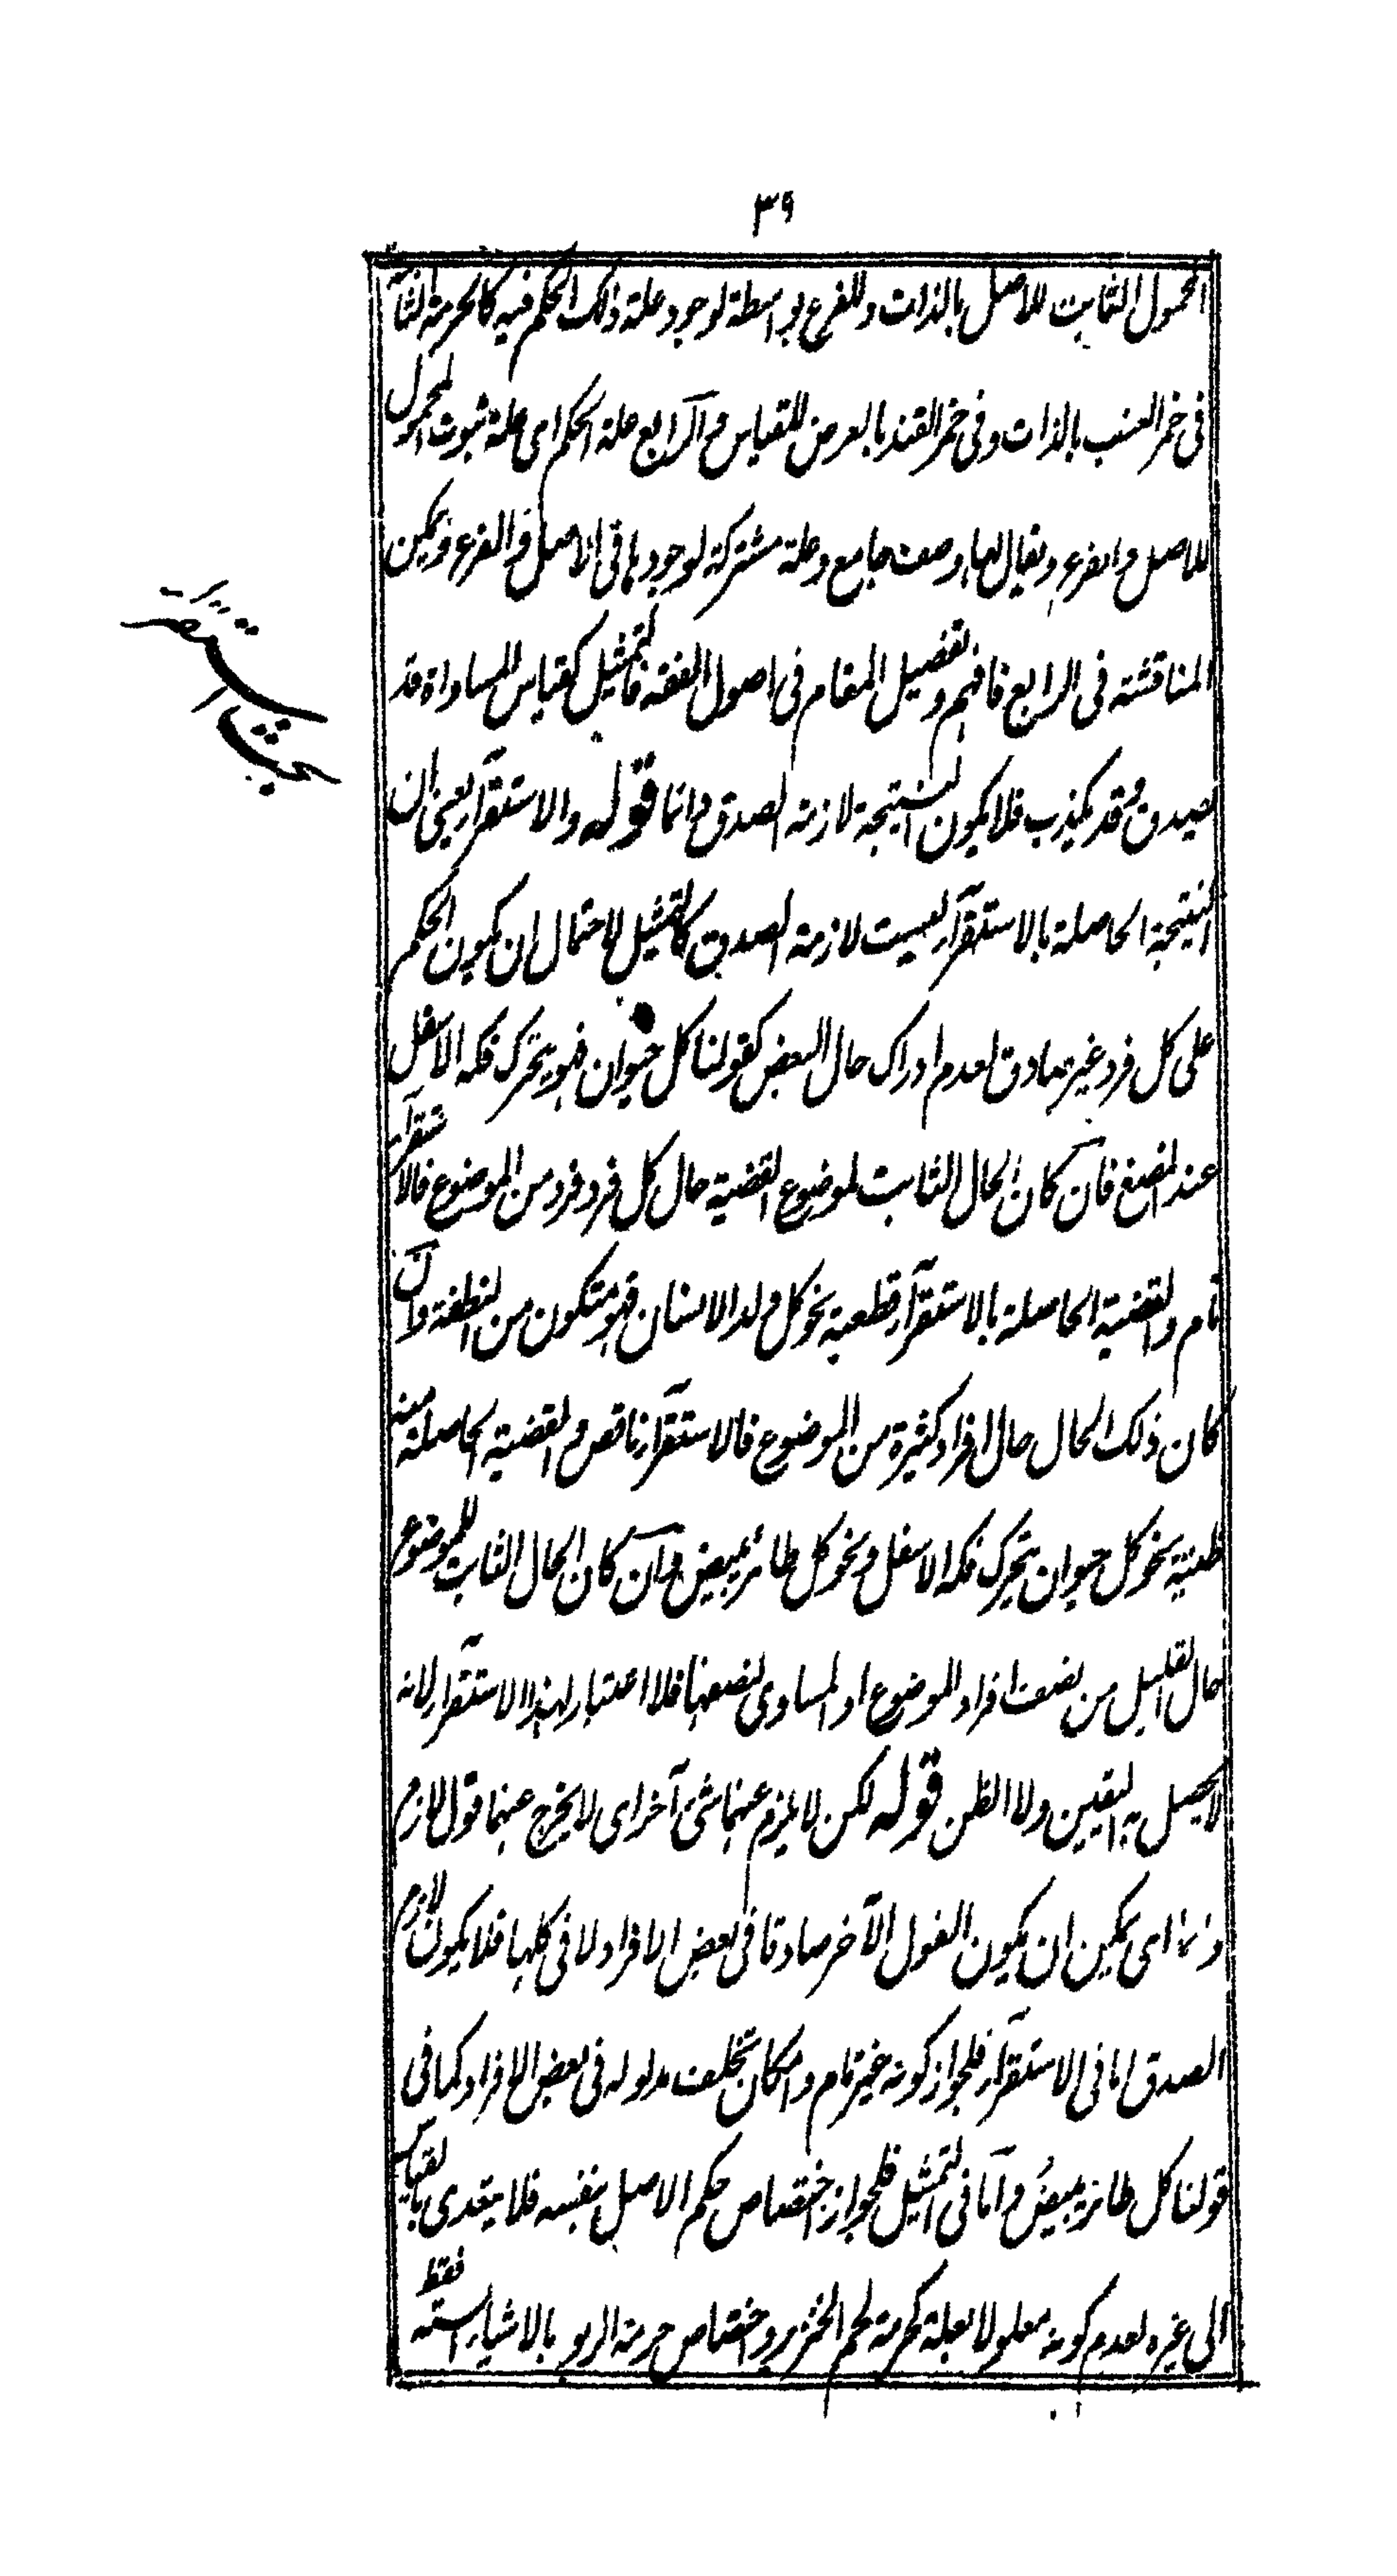 ٣٩
المحمول الثابت للاصل بالذات وللفرع بواسطة لوجود علة ذلك الحكم فيه كالحرمة الثابتة
فى خمر العنب بالذات وفى خمر القند بالعرض للقياس والرابع علة الحكم اى علة ثبوت المحمول
للاصل والفرع ويقال لها وصف جامع وعلة مشتركة لوجودها فى الاصل والفرع ويمكن
المناقشة فى الرابع فافهم وتفصيل المقام فى اصول الفقه فالتمثيل كقياس المساواة قد
يصدق وقد يكذب فلا يكون النتيجة لازمة الصدق دائما قوله والاستقرآء يعنى ان
النتيجة الحاصلة بالاستقرآء ليست لازمة الصدق كالتمثيل لاحتمال ان يكون الحكم
على كل فرد غير صادق لعدم ادراك حال البعض كقولنا كل حيوان فهو يتحرك فكه الاسفل
عند المضغ فان كان الحال الثابت لموضوع القضية حال كل فرد فرد من الموضوع فالاستقرآء
تام والقضية الحاصلة بالاستقرآء قطعية نحو كل ولد الانسان فهو متكون من النطفة وان
كان ذلك الحال حال افراد كثيرة من الموضوع فالاستقرآء ناقص والقضية الحاصلة منه
ظنية نحو كل حيوان يتحرك فكه الاسفل ونحو كل طائر يبيض وان كان الحال الثابت للموضوع
حال القليل من نصف افراد الموضوع او المساوى لنصفها فلا اعتبار لهذا الاستقرآء لانه
لا يحصل به اليقين ولا الظن قوله لكن لا يلزم عنها شئ آخر اى لا يخرج عنها قول لازم
دائما اى يمكن ان يكون القول الآخر صادقا فى بعض الافراد لا فى كلها فلا يكون لازم
الصدق اما فى الاستقرآء فلجواز كونه غير تام وامكان تخلف مدلوله فى بعض الافراد كما فى
قولنا كل طائر يبيض واما فى التمثيل فلجواز اختصاص حكم الاصل بنفسه فلا يتعدى بالقياس
الى غيره لعدم كونه معلولا بعلة كحرمة لحم الخنزير واختصاص حرمة الربو بالاشياء الستة فقط
بحث استقرآء